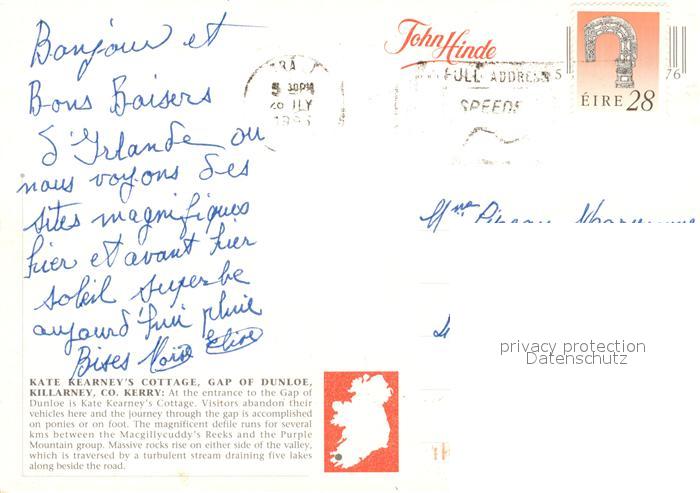 Bonjour et
Bons Baisers
d'Irlande ou
nous voyons des
sites magnifiques
hier et avant hier
soleil superbe
aujourd'hui pluie
Bises
John Hinde
5 30PM
FULL ADDRESS
SPEEDS
5
76
ÉIRE 28
Mme
privacy protection
Datenschutz
KATE KEARNEY'S COTTAGE, GAP OF DUNLOE,
KILLARNEY, CO. KERRY: At the entrance to the Gap of
Dunloe is Kate Kearney's Cottage. Visitors abandon their
vehicles here and the journey through the gap is accomplished
on ponies or on foot. The magnificent defile runs for several
kms between the Macgillycuddy's Reeks and the Purple
Mountain group. Massive rocks rise on either side of the valley,
which is traversed by a turbulent stream draining five lakes
along beside the road.